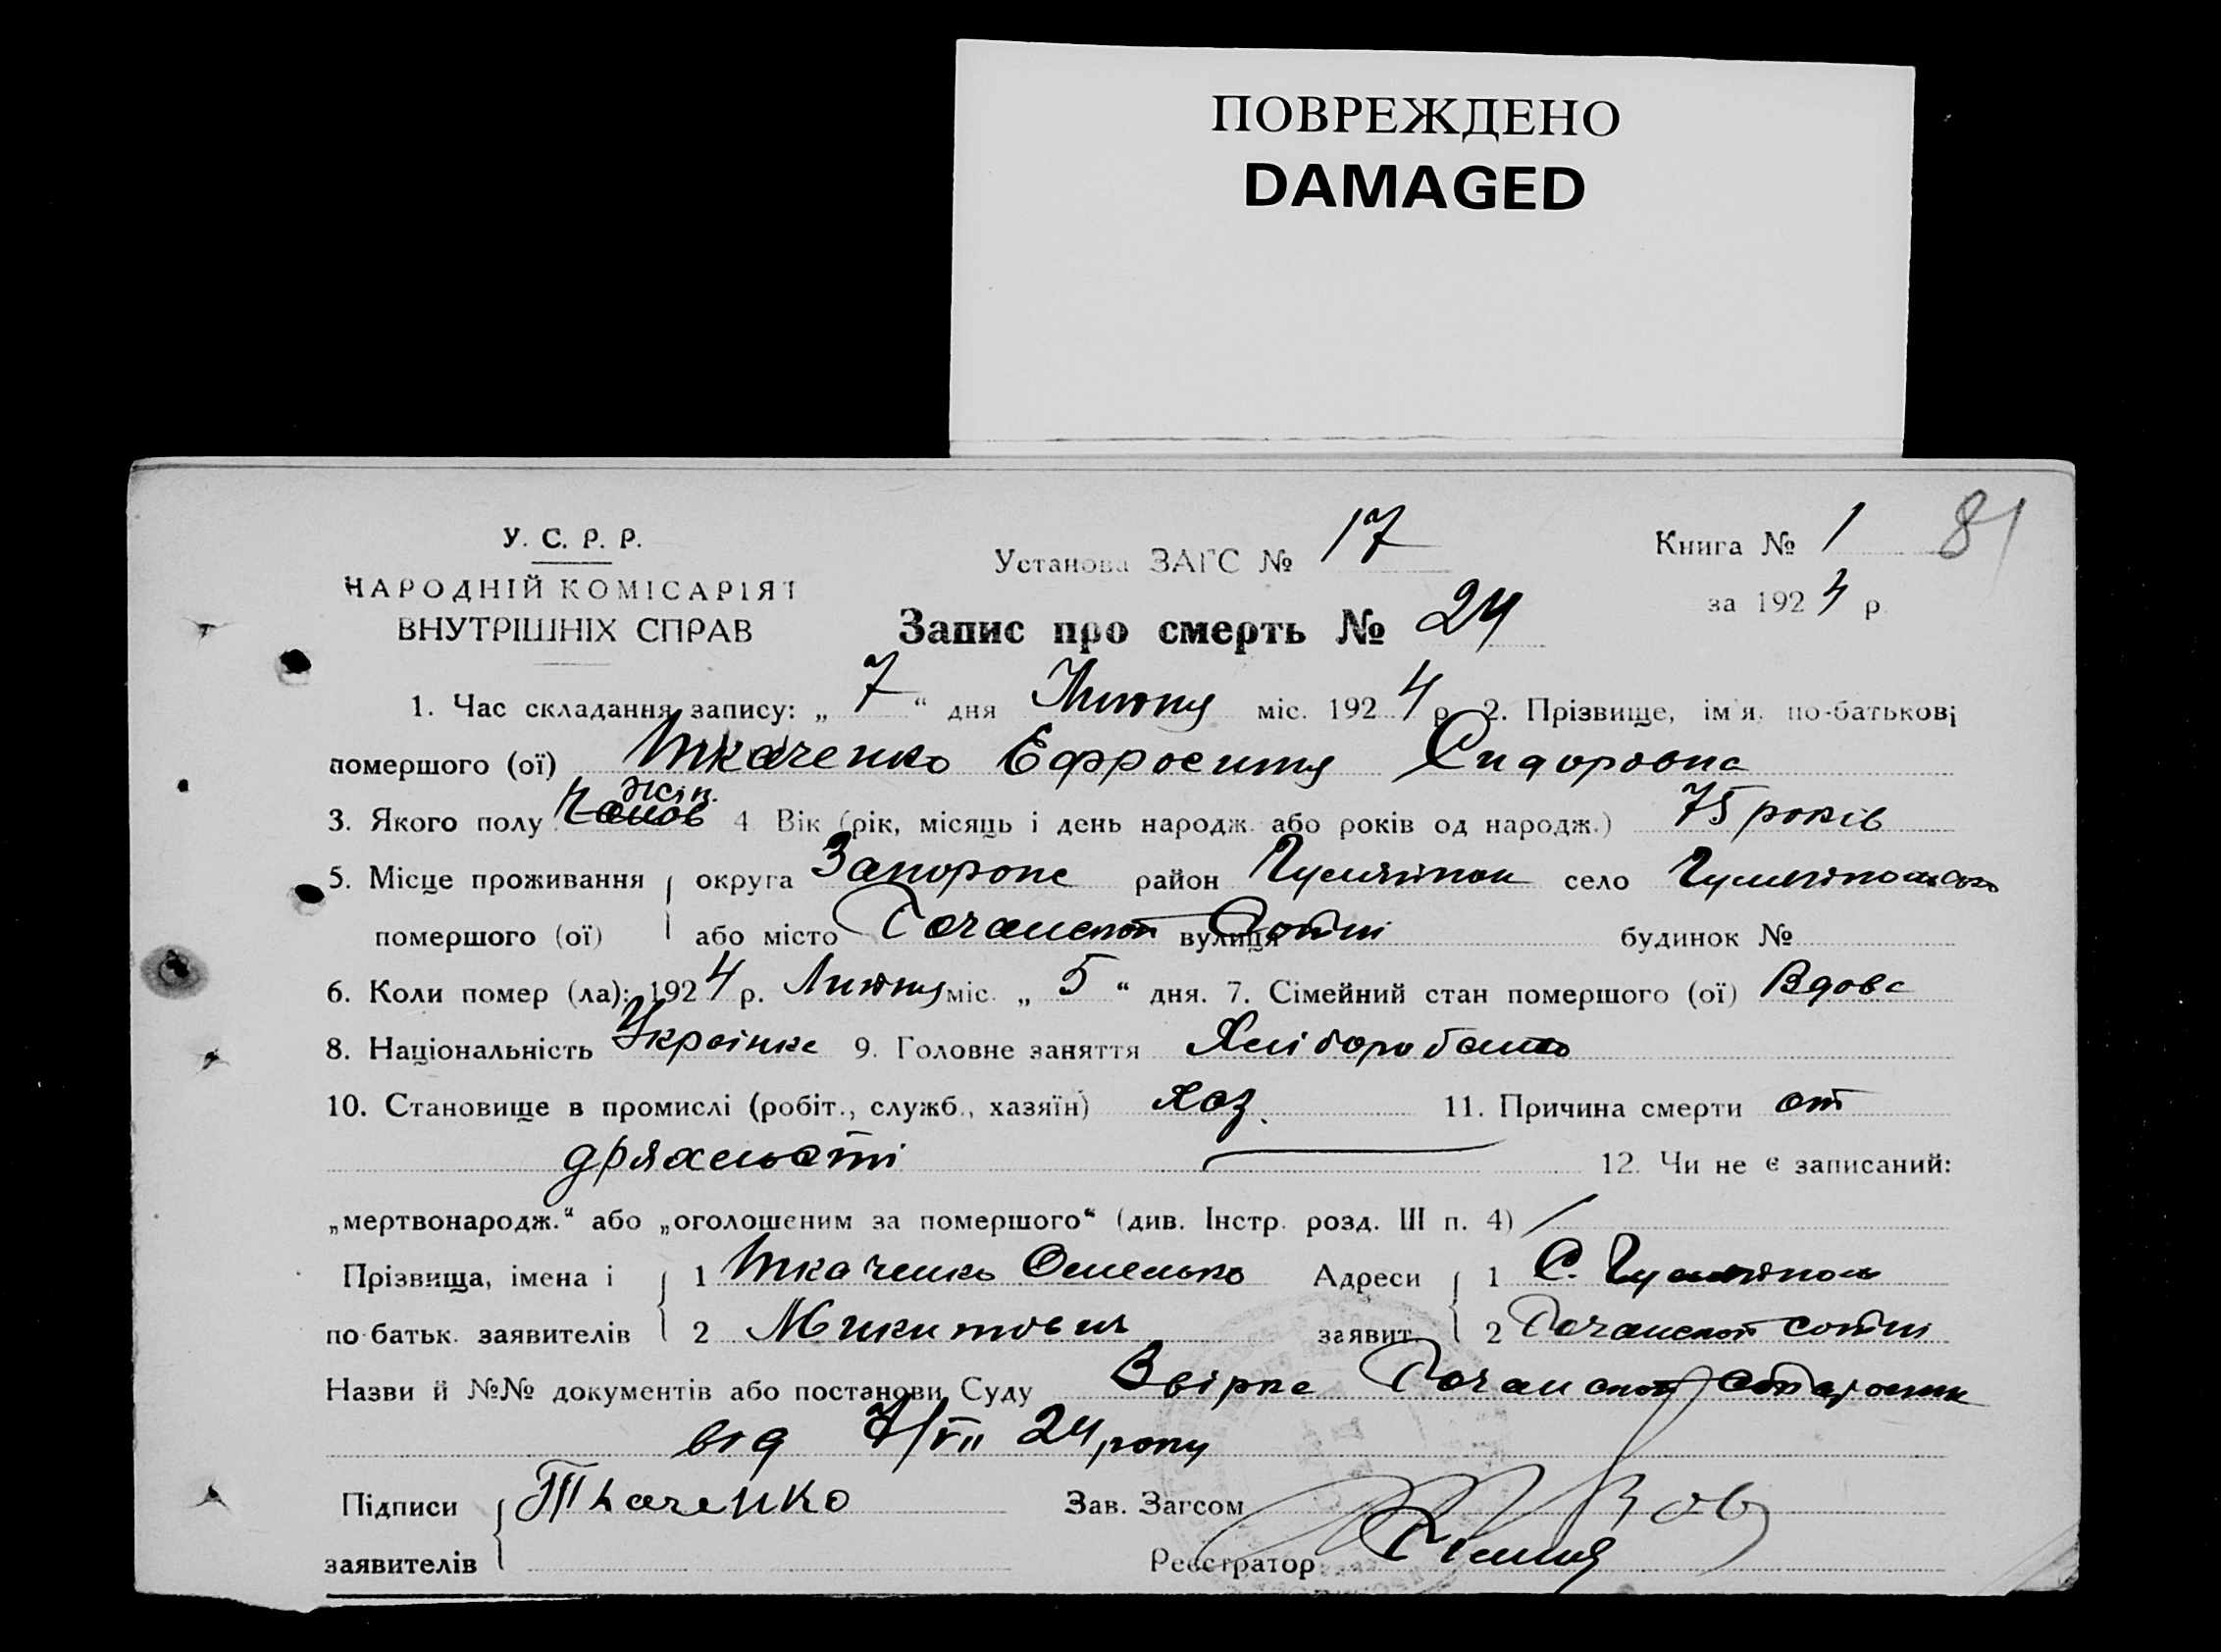 ПОВРЕЖДЕНО
DAMAGED
У. С. Р. Р.
НАРОДНІЙ КОМІСАРІЯТ
ВНУТРІШНІХ СПРАВ
Установа ЗАГС № 17
Книга № 1 81
за 1924 р.
Запис про смерть № 24
1. Час складання запису: „ 7 “ дня Липня міс. 1924 р. 2. Прізвище, ім'я, по-батькові
помершого (ої) Ткаченко Ефросиня Сидоровна
3. Якого полу жін. 4 Вік (рік, місяць і день народж. або років од народж.) 75 років
5. Місце проживання округа Запорожс район Гуляйпол село Гуляйпольсько
помершого (ої) або місто вулиця Сотні будинок №
6. Коли помер (ла): 1924 р. Липня міс. „ 5 “ дня. 7. Сімейний стан помершого (ої) Вдова
8. Національність Українка 9. Головне заняття Хліборобство
10. Становище в промислі (робіт., служб., хазяїн) хаз. 11. Причина смерти от
дряхлості 12. Чи не є записаний:
„мертвонародж.“ або „оголошеним за помершого“ (див. Інстр. розд. III п. 4) /
Прізвища, імена і 1 Ткаченко Омелько Адреси 1 С. Гуляйполь
по-батьк. заявителів 2 Микитович заявит. 2 сотні
Назви й №№ документів або постанови Суду
від 7/VII 24 року
Підписи Ткаченко Зав. Загсом
заявителів Реєстратор